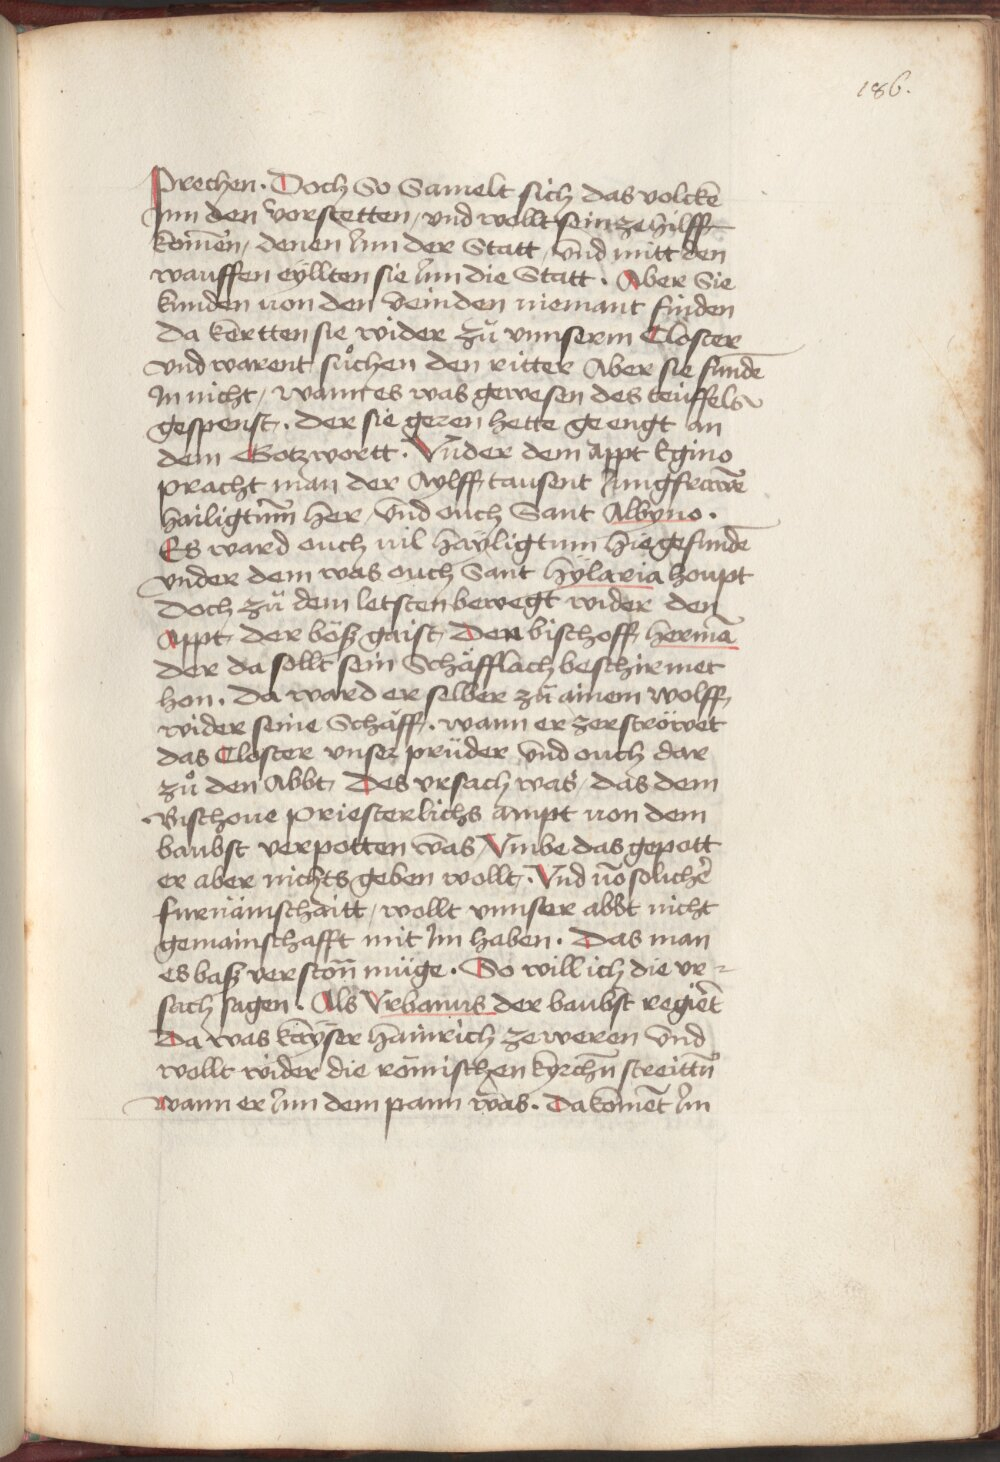 186.
Prechen. Doch So Samelt sich das volcke
Inn den vorstetten, vnd wollt sein ze hilff
komen̄, denen Inn der Statt, vnd mitt den
wauffen eyllten sie Inn die Statt. Aber Sie
kunden von den veinden niemant finden
da kertten sie wider zů vnnserm Closter
vnd warent sůchen den ritter Aber sie fundē
In nicht, wann es was gewesen des teuffels
gespenst. der sie geren hette geengt an
dem Gotzwortt. Vnder dem Appt Egino
pracht man der Aylff tausent Jungfrawē
hailigtum̄ her, vnd ouch Sant Albyno.
Es ward ouch vil hayligtum hie gefundē
vnder dem was ouch Sant hylaria houpt
doch zů dem letsten bewegt wider den
Appt, der böß gaist, Den bischoff hermā
der da sollt sein Schäfflach beschirmet
hon. da ward er selber zů ainem wolff,
wider seine Schäff. wann er zerströwet
das Closter vnser prüder vnd ouch dar
zů den Abbt, Des vrsach was, das dem
Bischoue priesterlichs ampt von dem
baubst verpotten was, Vmbe das gepott
er aber nichts geben wollt. Vnd vō solichē
furnämschaitt, wollt vnnser abbt nicht
gemainschafft mit Im haben. Das man
es baß verston̄ müge. So will ich die vr=
sach sagen. Als Vrbanus der baubst regiert
Da was kayser hainrich zeweren vnd
wollt wider die römischen kyrchn̄ streittn̄
wann er Inn dem pann was. da komet̄ Im